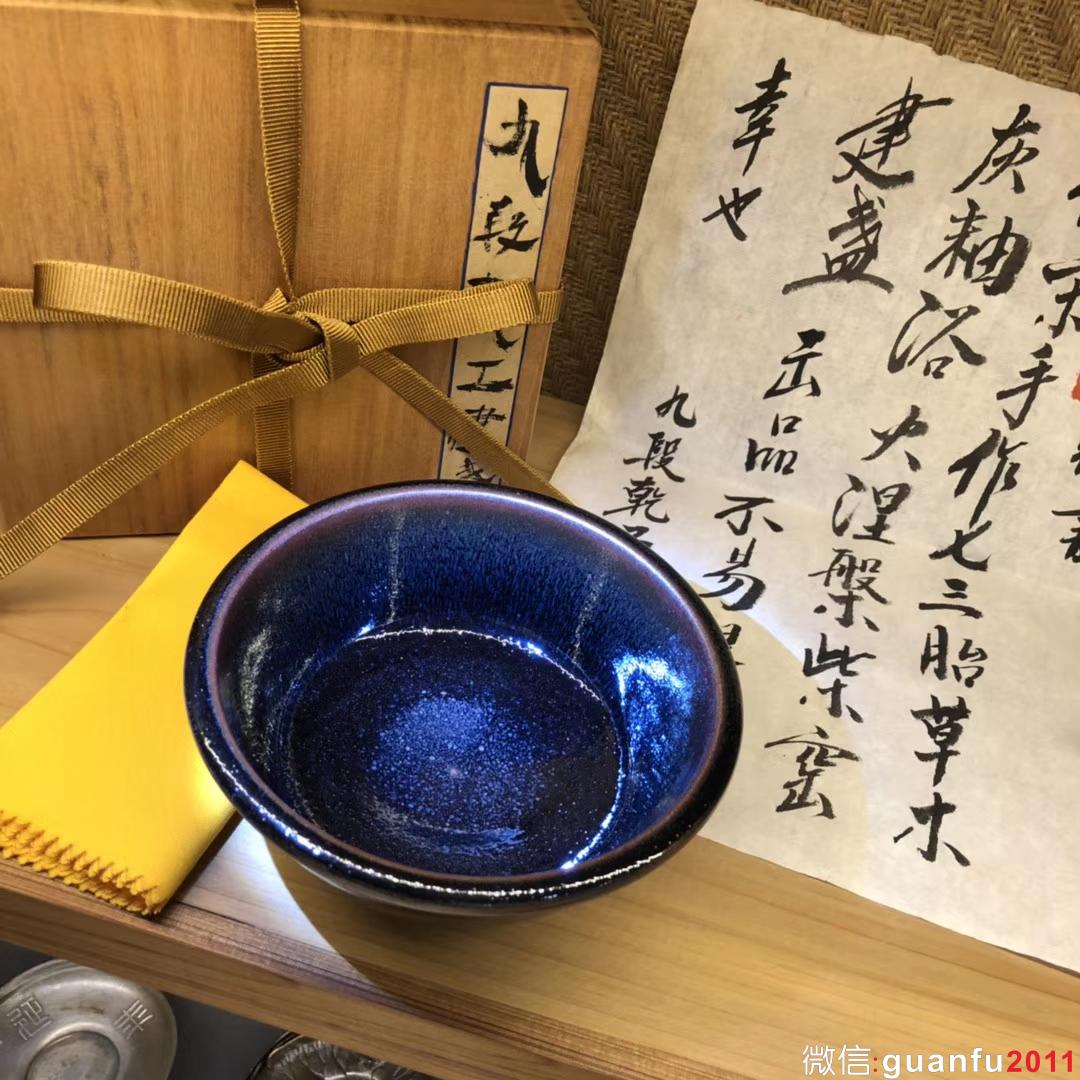 九段
工艺
手作七三胎草木
灰釉浴火涅槃柴窑
建盏 出品不易
幸也
九段乾
微信:guanfu2011